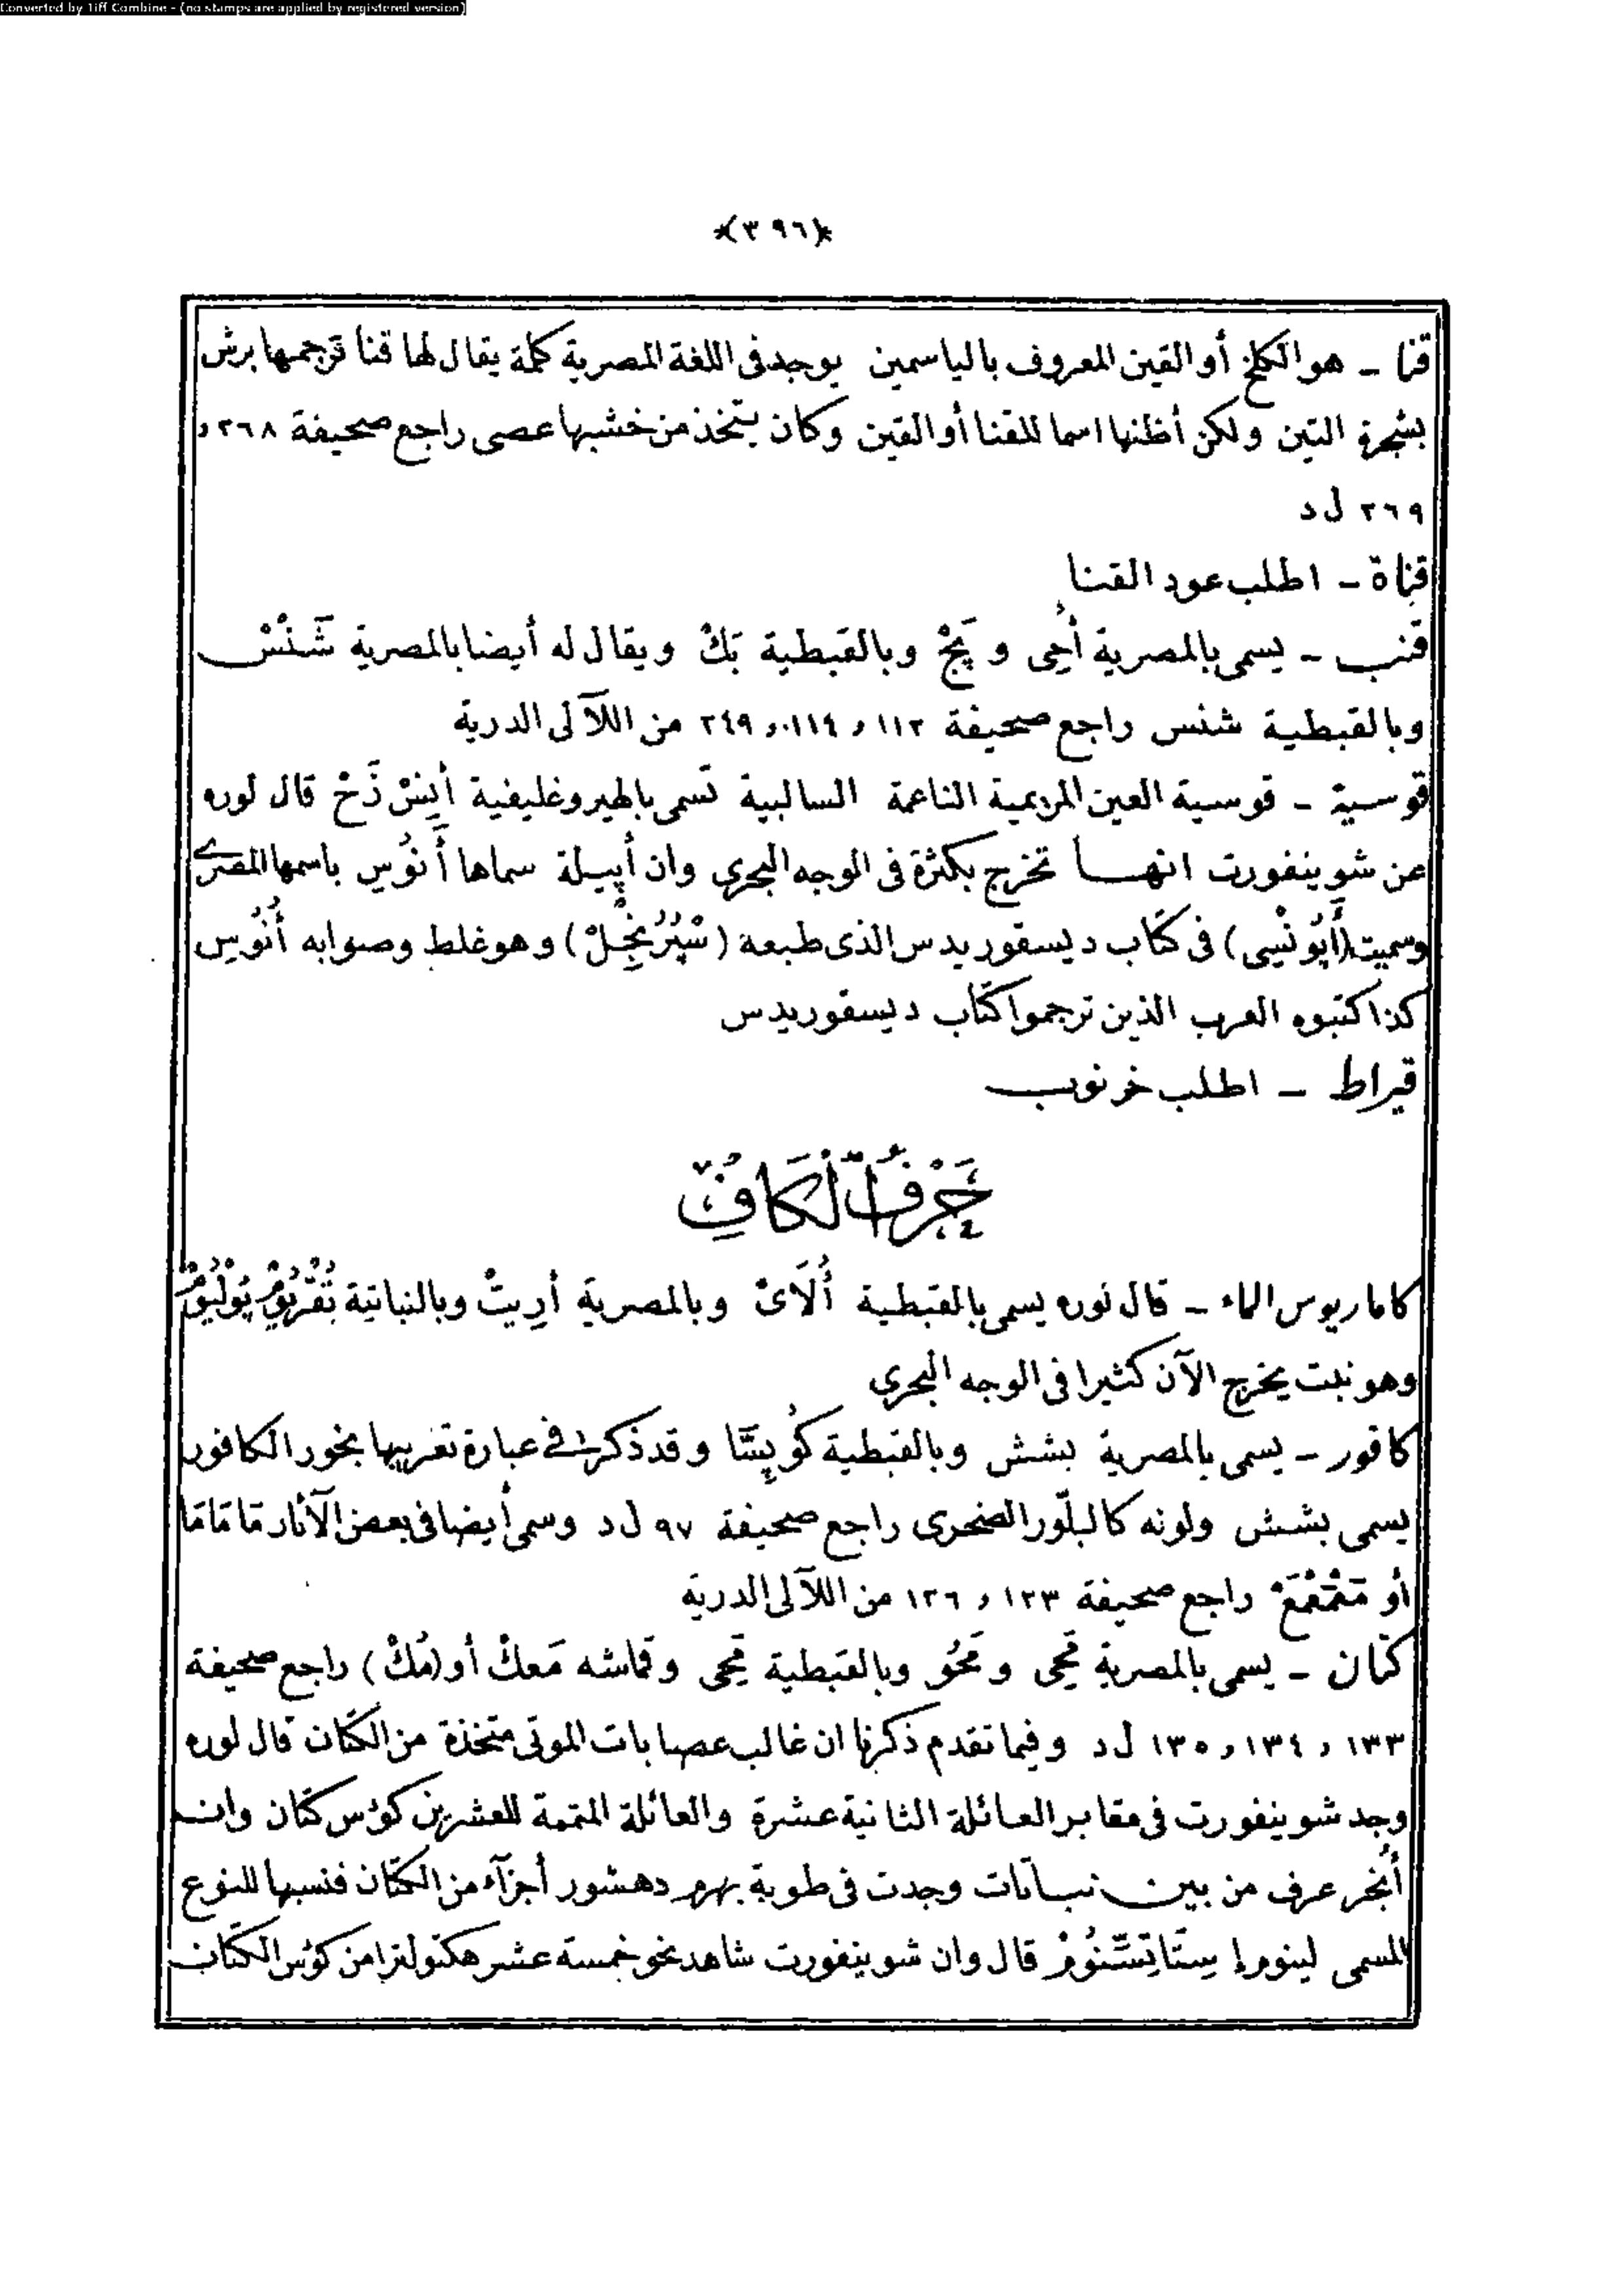 Converted by Tiff Combine - (no stamps are applied by registered version)
*(٣٩٦)*
قنا ـ هو الكلخ أو القين المعروف بالياسمين يوجد فى اللغة المصرية كلمة يقال لها قنا ترجمها برش
بشجرة التين ولكن أظنها اسما للقنا أو القين وكان يتخذ من خشبها عصى راجع صحيفة ٢٦٨ و
٢٦٩ ل د
قناة ـ اطلب عود القنا
قنب ـ يسمى بالمصرية أُحِى و پَجْ وبالقبطية بَكْ ويقال له أيضا بالمصرية شَنْسْ
وبالقبطية شنس راجع صحيفة ١١٢ و ١١٤ و ٢٤٩ من اللآلى الدرية
قوسية ـ قوسية العين المريمية الناعمة السالبية تسمى بالهيروغليفية أَبِنْسْ ذَخْ قال لوره
عن شوينفورت انها تخرج بكثرة فى الوجه البحرى وان أپيلة سماها أَنُوُسِ باسمها المصرى
وسميت (أَپُونْسِى) فى كتاب ديسقوريدس الذى طبعه (سْپُرُنْجِلْ) وهو غلط وصوابه أَنُوُسِ
كذا كتبوه العرب الذين ترجموا كتاب ديسقوريدس
قيراط ـ اطلب خرنوب
حَرْفُ الْكَافِ
كاماريوس الماء ـ قال لوره يسمى بالقبطية أُلَائْ وبالمصرية أرِيتْ وبالنباتية تُقْرِيُومْ پُولْيُومْ
وهو نبت يخرج الآن كثيرا فى الوجه البحرى
كافور ـ يسمى بالمصرية بشش وبالقبطية كُوپِسَّا وقد ذكر فى عبارة تعريبها بخور الكافور
يسمى بشش ولونه كالبلّور الصخرى راجع صحيفة ٩٧ ل د وسمى أيضا فى بعض الآثار قَامَامَا
أو قَمْقَمَعْ راجع صحيفة ١٢٣ و ١٢٦ من اللآلى الدرية
كتّان ـ يسمى بالمصرية مَحِى و مَحُو وبالقبطية مَحِى وقماشه مَعكْ أو (مُكْ) راجع صحيفة
١٣٣ و ١٣٤ و ١٣٥ ل د وفيما تقدم ذكرنا ان غالب عصابات الموتى متخذة من الكتان قال لوره
وجد شوينفورت فى مقابر العائلة الثانية عشرة والعائلة المتممة للعشرين كؤس كتان وان
أُنْجَر عرف من بين نباتات وجدت فى طوبة بهرم دهشور أجزاء من الكتان فنسبها للنوع
المسمى لينوم إِسِتَاتِسْتُنُومْ قال وان شوينفورت شاهد نحو خمسة عشر هكتولترا من كؤس الكتان